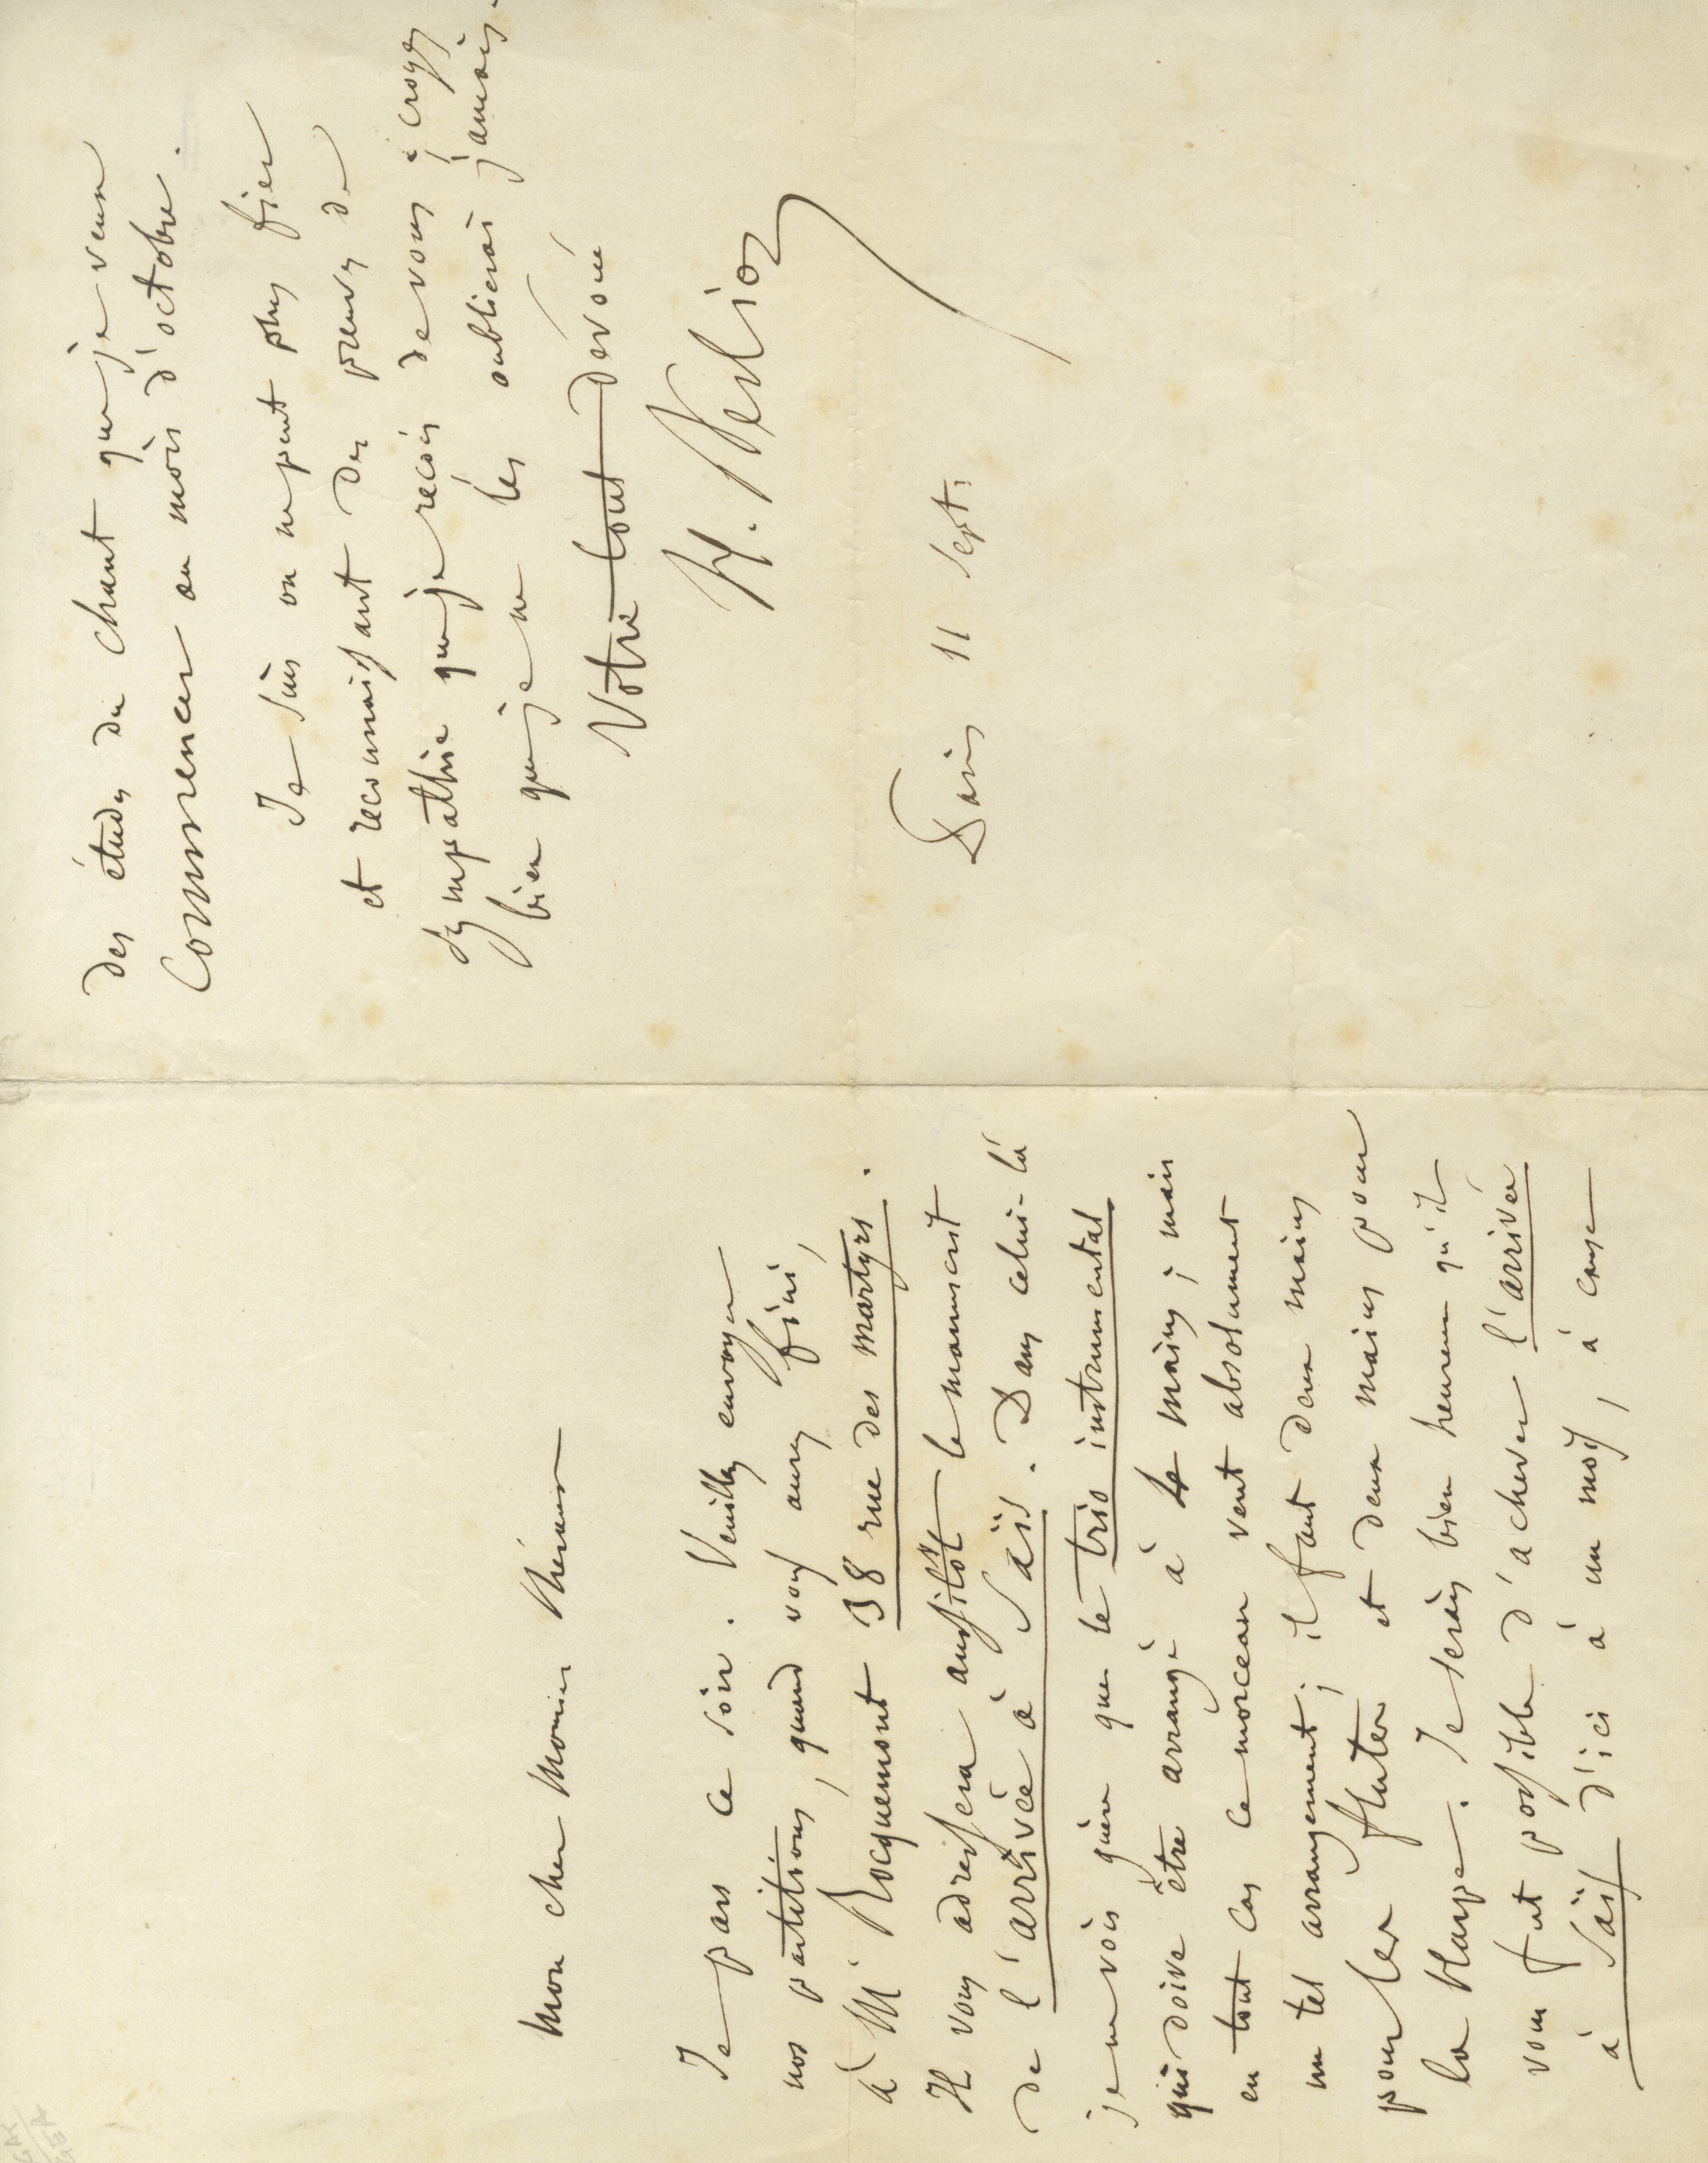 Mon cher Monsieur Méreaux
Je pars ce soir. Veuillez envoyer
nos partitions, quand vous aurez fini,
à Mr Rocquemont 38 rue des martyrs.
Il vous adressera aussitôt le manuscrit
de l'arrivée à Saïs. Dans celui-là
je ne vois guère que le trio instrumental
qui doive être arrangé à 4 mains; mais
en tout cas ce morceau veut absolument
un tel arrangement; il faut deux mains
pour les flutes et deux mains pour
la harpe. Je serais bien heureux qu'il
vous fut possible d'achever l'arrivée
à Saïs d'ici à un mois, à cause
des études du chant que je veux
commencer au mois d'octobre.
Je suis on ne peut plus fier
et reconnaissant des preuves de
sympathie que je reçois de vous; croyez
bien que je ne les oublierai jamais.
Votre tout dévoué
H. Berlioz
Paris 11 Sept: